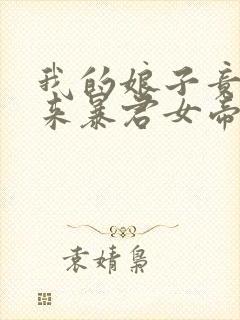 我的娘子竟
来暴君女帝
袁婧枭